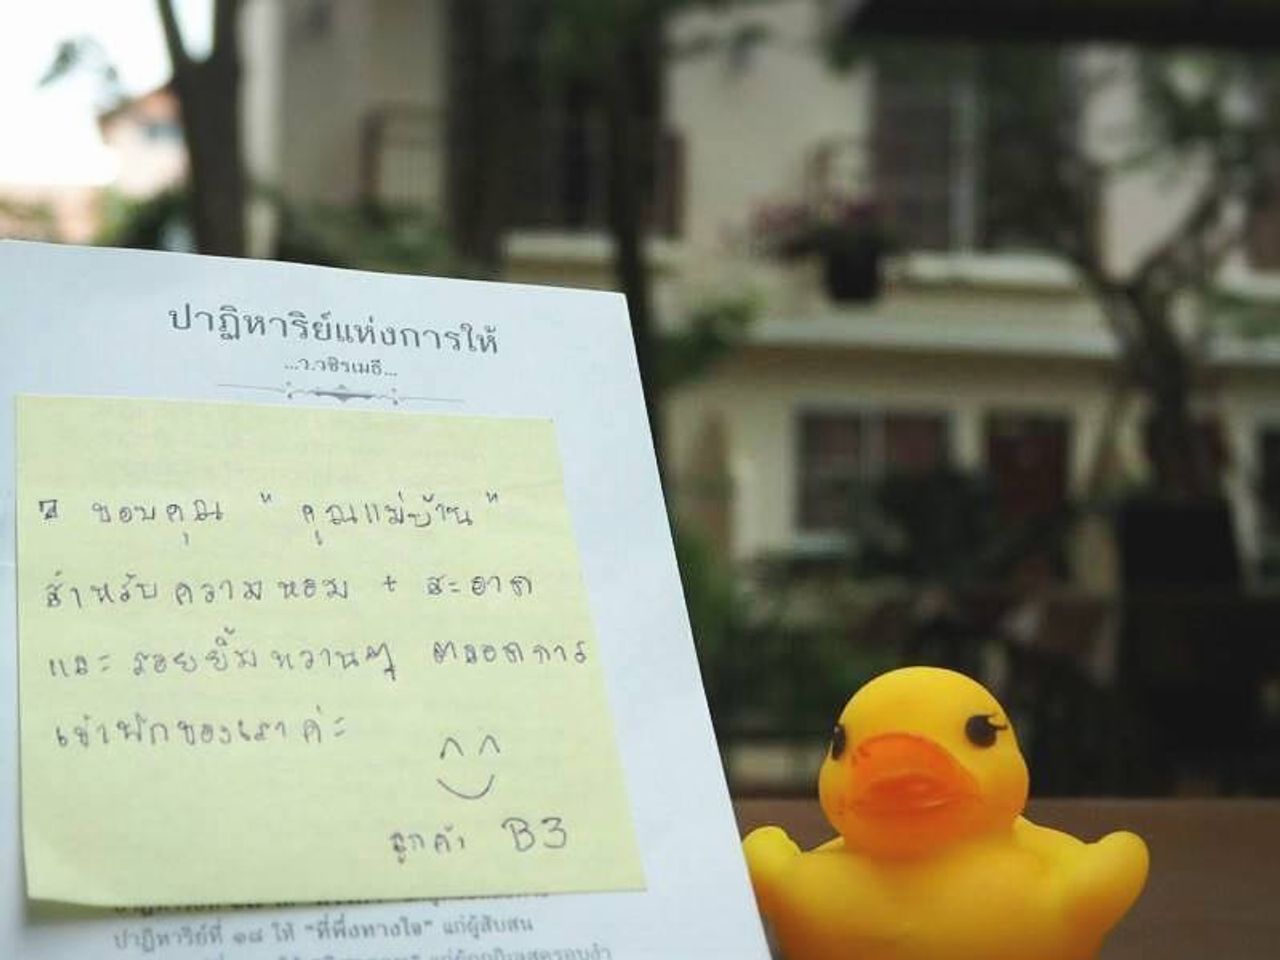 ปาฏิหาริย์แห่งการให้
...ว.วชิรเมธี...
ขอบคุณ " คุณแม่บ้าน "
สำหรับความหอม + สะอาด
และ รอยยิ้มหวานๆ ตลอดการ
เข้าพักของเราค่ะ
ลูกค้า B3
ปาฏิหาริย์ที่ ๑๘ ให้ "ที่พึ่งทางใจ" แก่ผู้สับสน